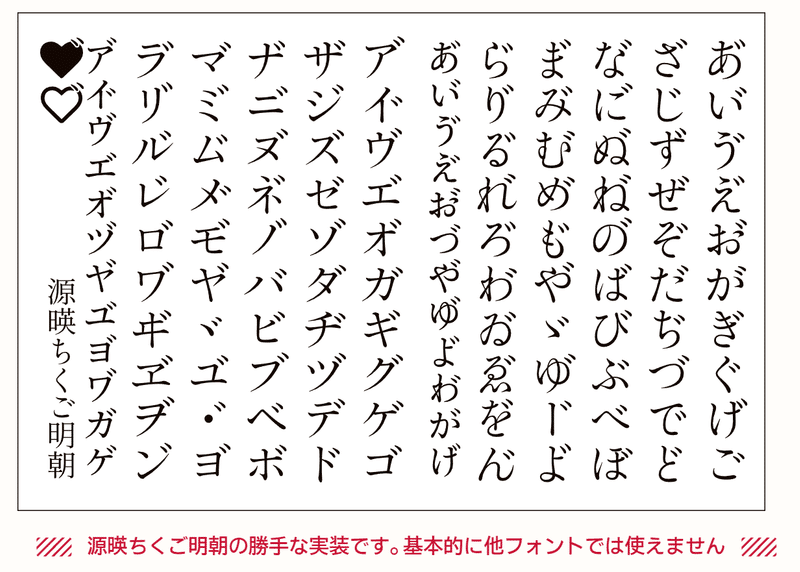 あ゙い゙ゔえ゙お゙がぎぐげご
ざじずぜぞだぢづでど
な゙に゙ぬ゙ね゙の゙ばびぶべぼ
ま゙み゙む゙め゙も゙や゙ゞゆ゙ー゙よ゙
ら゙り゙る゙れ゙ろ゙わ゙ゐ゙ゑ゙を゙ん゙
ぁ゙ぃ゙ぅ゙ぇ゙ぉ゙っ゙ゃ゙ゅ゙ょ゙ゎ゙ゕ゙ゖ゙
ア゙イ゙ヴエ゙オ゙ガギグゲゴ
ザジズゼゾダヂヅデド
ナ゙ニ゙ヌ゙ネ゙ノ゙バビブベボ
マ゙ミ゙ム゙メ゙モ゙ヤ゙ヾユ゙・゙ヨ゙
ラ゙リ゙ル゙レ゙ロ゙ヷヸヹヺン゙
ァ゙ィ゙ゥ゙ェ゙ォ゙ッ゙ャ゙ュ゙ョ゙ヮ゙ヵ゙ヶ゙
♥゙♡゙
源暎ちくご明朝
源暎ちくご明朝の勝手な実装です。基本的に他フォントでは使えません